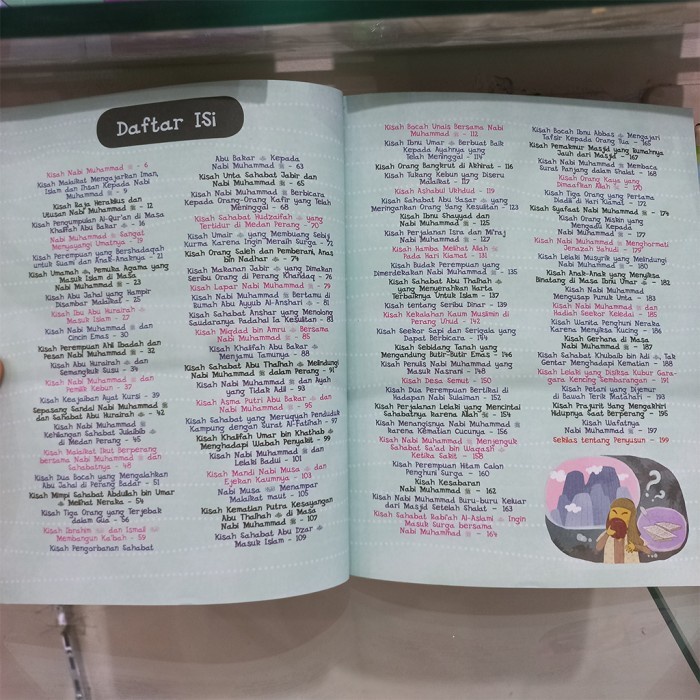 Daftar ISi
Kisah Nabi Muhammad ﷺ - 6
Kisah Malaikat Mengajarkan Iman,
Islam dan Ihsan Kepada Nabi
Muhammad ﷺ - 9
Kisah Raja Heraklius dan
Utusan Nabi Muhammad ﷺ - 12
Kisah Pengumpulan Al-Qur'an di Masa
Khalifah Abu Bakar - 16
Nabi Muhammad ﷺ Sangat
Menyayangi Umatnya - 19
Kisah Perempuan yang Bershadaqah
untuk Suami dan Anak-Anaknya - 21
Kisah Umamah Pemuka Agama yang
Masuk Islam di Masa
Nabi Muhammad ﷺ - 23
Kisah Abu Jahal yang Hampir
Disambar Malaikat - 25
Kisah Ibu Abu Hurairah
Masuk Islam - 27
Kisah Nabi Muhammad ﷺ dan
Cincin Emas - 30
Kisah Perempuan Ahli Ibadah dan
Pesan Nabi Muhammad ﷺ - 32
Kisah Abu Hurairah dan
Semangkuk Susu - 34
Kisah Nabi Muhammad ﷺ dan
Pemilik Kebun - 37
Kisah Keajaiban Ayat Kursi - 39
Sepasang Sandal Nabi Muhammad ﷺ
dan Sahabat Abu Hurairah - 42
Kisah Nabi Muhammad ﷺ
Kehilangan Sahabat Julaibib
di Medan Perang - 45
Kisah Malaikat Ikut Berperang
bersama Nabi Muhammad ﷺ dan
Sahabatnya - 48
Kisah Dua Bocah yang Mengalahkan
Abu Jahal di Perang Badar - 51
Kisah Mimpi Sahabat Abdullah bin Umar
Melihat Neraka - 54
Kisah Tiga Orang yang Terjebak
dalam Gua - 56
Kisah Ibrahim dan Ismail
Membangun Ka'bah - 59
Kisah Pengorbanan Sahabat
Abu Bakar Kepada
Nabi Muhammad ﷺ - 63
Kisah Unta Sahabat Jabir dan
Nabi Muhammad ﷺ - 65
Kisah Nabi Muhammad ﷺ Berbicara
Kepada Orang-Orang Kafir yang Telah
Meninggal - 68
Kisah Sahabat Hudzaifah yang
Tertidur di Medan Perang - 70
Kisah Umair yang Membuang Sebiji
Kurma Karena Ingin Meraih Surga - 72
Kisah Orang Saleh dan Pemberani, Anas
bin Nadhar - 74
Kisah Makanan Jabir yang Dimakan
Seribu Orang di Perang Khandaq - 76
Kisah Lapar Nabi Muhammad ﷺ - 79
Kisah Nabi Muhammad ﷺ Bertamu di
Rumah Abu Ayyub Al-Anshari - 81
Kisah Sahabat Anshar yang Menolong
Saudaranya Padahal Ia Kesulitan - 83
Kisah Miqdad bin Amru Bersama
Nabi Muhammad ﷺ - 85
Kisah Khalifah Abu Bakar
Menjamu Tamunya - 88
Kisah Sahabat Abu Thalhah Melindungi
Nabi Muhammad ﷺ dalam Perang - 91
Kisah Nabi Muhammad ﷺ dan Ayah
yang Tidak Adil - 93
Kisah Asma Putri Abu Bakar dan
Nabi Muhammad ﷺ - 95
Kisah Sahabat yang Meruqyah Penduduk
Kampung dengan Surat Al-Fatihah - 97
Kisah Khalifah Umar bin Khathab
Menghadapi Wabah Penyakit - 99
Kisah Nabi Muhammad ﷺ dan
Lelaki Badui - 101
Kisah Mandi Nabi Musa dan
Ejekan Kaumnya - 103
Nabi Musa Menampar
Malaikat maut - 105
Kisah Kematian Putra Kesayangan
Abu Thalhah di Masa
Nabi Muhammad ﷺ - 107
Kisah Sahabat Abu Dzar
Masuk Islam - 109
Kisah Bocah Unais Bersama Nabi
Muhammad ﷺ - 112
Kisah Ibnu Umar Berbuat Baik
Kepada Ayahnya yang
Telah Meninggal - 114
Kisah Orang Bangkrut di Akhirat - 116
Kisah Tukang Kebun yang Diseru
Malaikat - 117
Kisah Ashabul Ukhdud - 119
Kisah Sahabat Abu Yasar yang
Meringankan Orang Yang Kesulitan - 123
Kisah Ibnu Shayyad dan
Nabi Muhammad ﷺ - 125
Kisah Perjalanan Isra dan Mi'raj
Nabi Muhammad ﷺ - 127
Kisah Hamba Melihat Allah
Pada Hari Kiamat - 131
Kisah Budak Perempuan yang
Dimerdekakan Nabi Muhammad ﷺ - 135
Kisah Sahabat Abu Thalhah
yang Menyerahkan Harta
Terbaiknya Untuk Islam - 137
Kisah tentang Seribu Dinar - 139
Kisah Kekalahan Kaum Muslimin di
Perang Uhud - 142
Kisah Seekor Sapi dan Serigala yang
Dapat Berbicara - 144
Kisah Sebidang Tanah yang
Mengandung Butir-Butir Emas - 146
Kisah Penulis Nabi Muhammad yang
Masuk Nasrani - 148
Kisah Desa Semut - 150
Kisah Dua Perempuan Bertikai di
Hadapan Nabi Sulaiman - 152
Kisah Perjalanan Lelaki yang Mencintai
Sahabatnya karena Allah - 154
Kisah Menangisnya Nabi Muhammad ﷺ
karena Kematian Cucunya - 156
Kisah Nabi Muhammad ﷺ Menjenguk
Sahabat Sa'ad bin Waqash
Ketika Sakit - 158
Kisah Perempuan Hitam Calon
Penghuni Surga - 160
Kisah Kesabaran
Nabi Muhammad ﷺ - 162
Kisah Nabi Muhammad Buru-buru Keluar
dari Masjid Setelah Shalat - 163
Kisah Sahabat Rabi'ah Al-Aslami Ingin
Masuk Surga bersama
Nabi Muhammad ﷺ - 164
Kisah Bocah Ibnu Abbas Mengajari
Tafsir Kepada Orang Tua - 165
Kisah Pemakmur Masjid yang Rumahnya
Jauh dari Masjid - 167
Kisah Nabi Muhammad ﷺ Membaca
Surat Panjang dalam Shalat - 168
Kisah Orang Kaya yang
Dimaafkan Allah - 170
Kisah Tiga Orang yang Pertama
Diadili di Hari Kiamat - 172
Kisah Syafaat Nabi Muhammad ﷺ - 174
Kisah Orang Miskin yang
Mengadu Kepada
Nabi Muhammad ﷺ - 177
Kisah Nabi Muhammad ﷺ Menghormati
Jenazah Yahudi - 179
Kisah Lelaki Musyrik yang Melindungi
Nabi Muhammad ﷺ - 180
Kisah Anak-Anak yang Menyiksa
Binatang di Masa Ibnu Umar - 182
Kisah Nabi Muhammad
Mengusap Punuk Unta - 183
Kisah Nabi Muhammad ﷺ dan
Hadiah Seekor Keledai - 185
Kisah Wanita Penghuni Neraka
Karena Menyiksa Kucing - 186
Kisah Gerhana di Masa
Nabi Muhammad ﷺ - 187
Kisah Sahabat Khubaib bin Adi Tak
Gentar Menghadapi Kematian - 188
Kisah Lelaki yang Disiksa Kubur Gara-
gara Kencing Sembarangan - 191
Kisah Petani yang Dijemur
di Bawah Terik Matahari - 193
Kisah Prajurit Yang Mengakhiri
Hidupnya Saat Berperang - 195
Kisah Wafatnya
Nabi Muhammad ﷺ - 197
Sekilas tentang Penyusun - 199